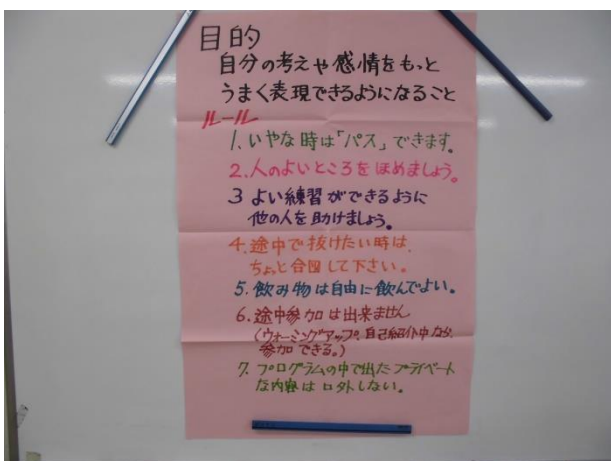 目的
自分の考えや感情をもっと
うまく表現できるようになること
ルール
1. いやな時は「パス」できます。
2. 人のよいところをほめましょう。
3 よい練習ができるように
他の人を助けましょう。
4. 途中で抜けたい時は、
ちょっと合図して下さい。
5. 飲み物は自由に飲んでよい。
6. 途中参加は出来ません
(ウォーミングアップ、自己紹介中なら、
参加できる。)
7. プログラムの中で出たプライベート
な内容は口外しない。